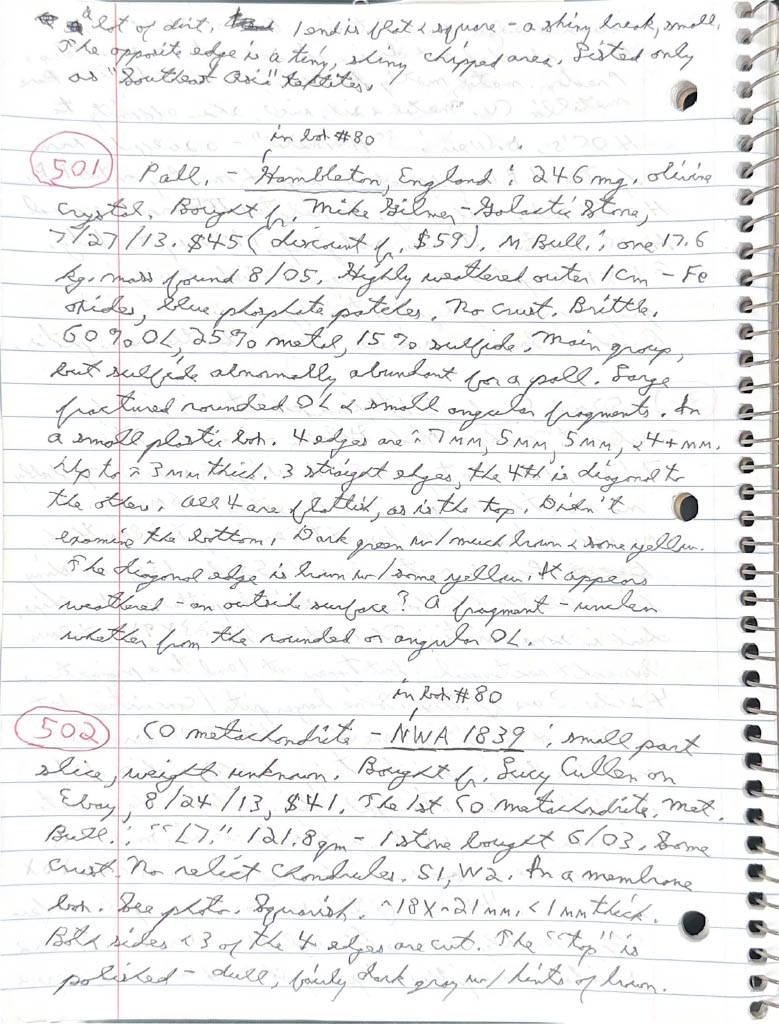 a lot of dirt. 1 end is flat & square - a shiny break, small.
The opposite edge is a tiny, shiny chipped area. Listed only
as "Southeast Asia" tektites.
in box #80
501 Pall. - Hambleton, England : 246 mg. olivine
crystal. Bought fr. Mike Gilmer - Galactic Stone,
7/27/13. $45 (discount fr. $59). M Bull.: one 17.6
kg. mass found 8/05. Highly weathered outer 1 cm - Fe
oxides, blue phosphate patches. No crust. Brittle.
60% OL, 25% metal, 15% sulfide. Main group,
but sulfide abnormally abundant for a pall. Large
fractured rounded OL & small angular fragments. In
a small plastic box. 4 edges are ~ 7 mm, 5mm, 5mm, & 4+ mm.
Up to ~ 3 mm thick. 3 straight edges, the 4th is diagonal to
the others. All 4 are flattish, as is the top. Didn't
examine the bottom. Dark green w/ much brown & some yellow.
The diagonal edge is brown w/ some yellow. It appears
weathered - an outside surface? A fragment - unclear
whether from the rounded or angular OL.
in box #80
502 CO metachondrite - NWA 1839 : small part
slice, weight unknown. Bought fr. Lucy Cullen on
Ebay, 8/24/13, $41. The 1st CO metachondrite. Met.
Bull.: "L7." 121.8 gm - 1 stone bought 6/03. Some
crust. No relict chondrules. S1, W2. In a membrane
box. See photo. Squarish. ~18 X ~21 mm. <1 mm thick.
Both sides & 3 of the 4 edges are cut. The "top" is
polished - dull, fairly dark gray w/ hints of brown.